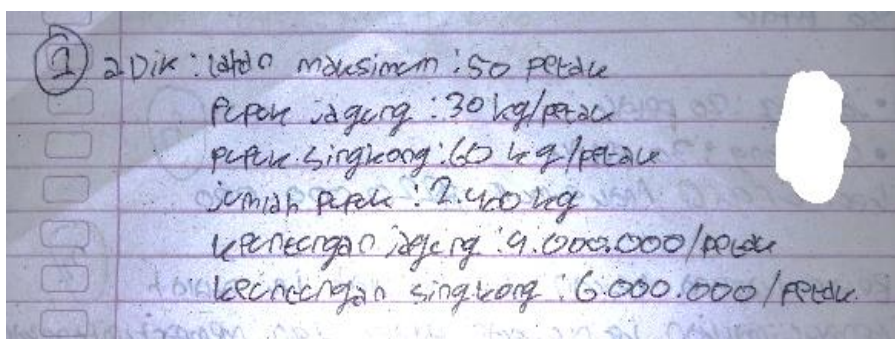 1 a Dik : lahan maksimum : 50 petak
Pupuk jagung : 30 kg/petak
pupuk singkong : 60 kg/petak
jumlah pupuk : 2.400 kg
keuntungan jagung : 4.000.000/petak
keuntungan singkong : 6.000.000/petak